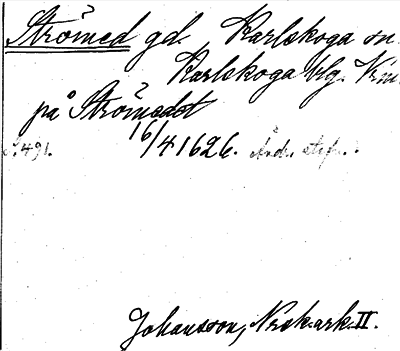 Strömed gd. Karlskoga sn.
Karlskoga bg. Vrm.
på Strömedet
S. 491. 16/4 1626.
Johansson, Nrk.ark. II.